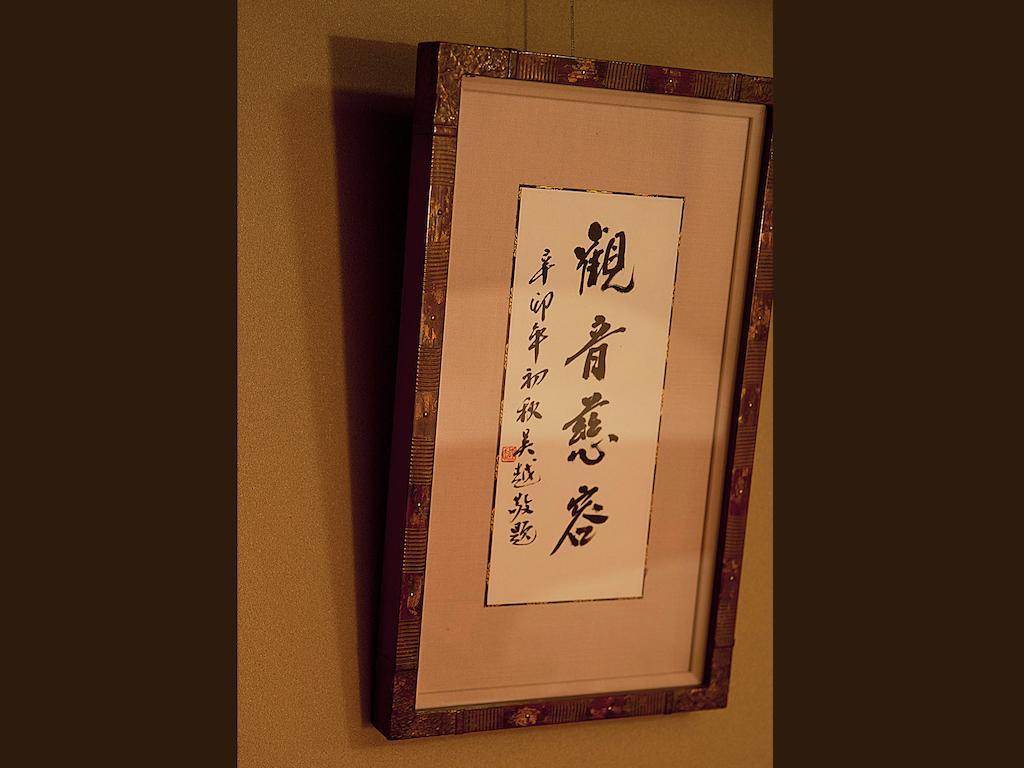 觀音慈容
辛卯年初秋吳越敬题